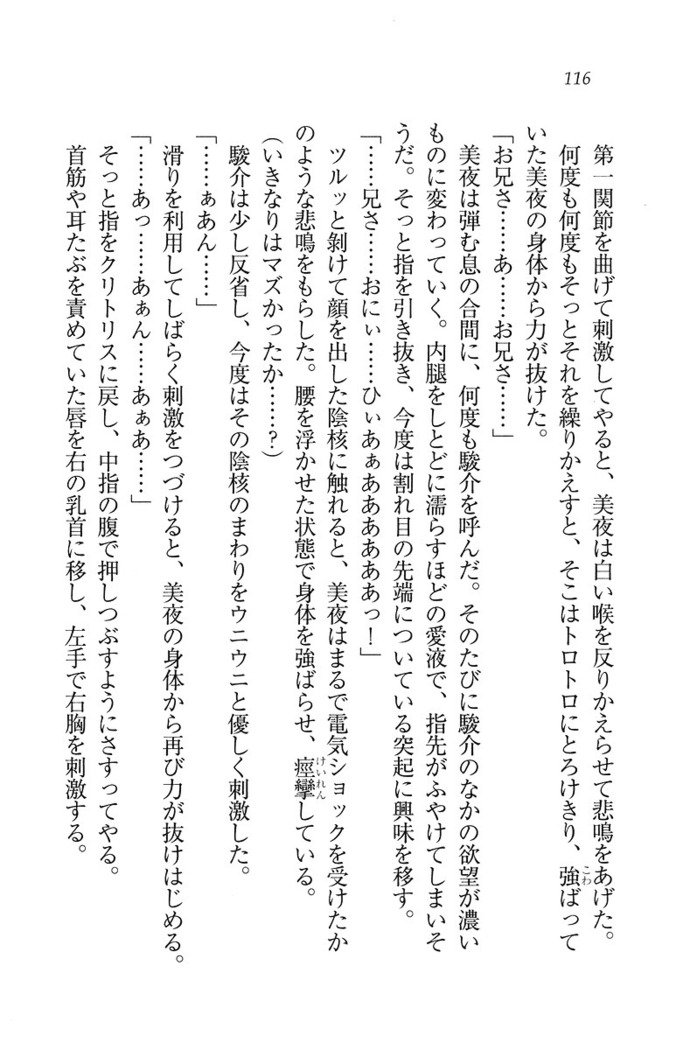 116
第一関節を曲げて刺激してやると、美夜は白い喉を反りかえらせて悲鳴をあげた。
何度も何度もそっとそれを繰りかえすと、そこはトロトロにとろけきり、強ばって
いた美夜の身体から力が抜けた。
「お兄さ……あ……お兄さ……」
美夜は弾む息の合間に、何度も駿介を呼んだ。そのたびに駿介のなかの欲望が濃い
ものに変わっていく。内腿をしとどに濡らすほどの愛液で、指先がふやけてしまいそ
うだ。そっと指を引き抜き、今度は割れ目の先端についている突起に興味を移す。
「……兄さ……おにぃ……ひぃあぁああああああっ！」
ツルッと剝けて顔を出した陰核に触れると、美夜はまるで電気ショックを受けたか
のような悲鳴をもらした。腰を浮かせた状態で身体を強ばらせ、痙攣している。
（いきなりはマズかったか……？）
駿介は少し反省し、今度はその陰核のまわりをウニウニと優しく刺激した。
「……ぁあん……」
滑りを利用してしばらく刺激をつづけると、美夜の身体から再び力が抜けはじめる。
「……あっ……あぁん……あぁあ……」
そっと指をクリトリスに戻し、中指の腹で押しつぶすようにさすってやる。
首筋や耳たぶを責めていた唇を右の乳首に移し、左手で右胸を刺激する。